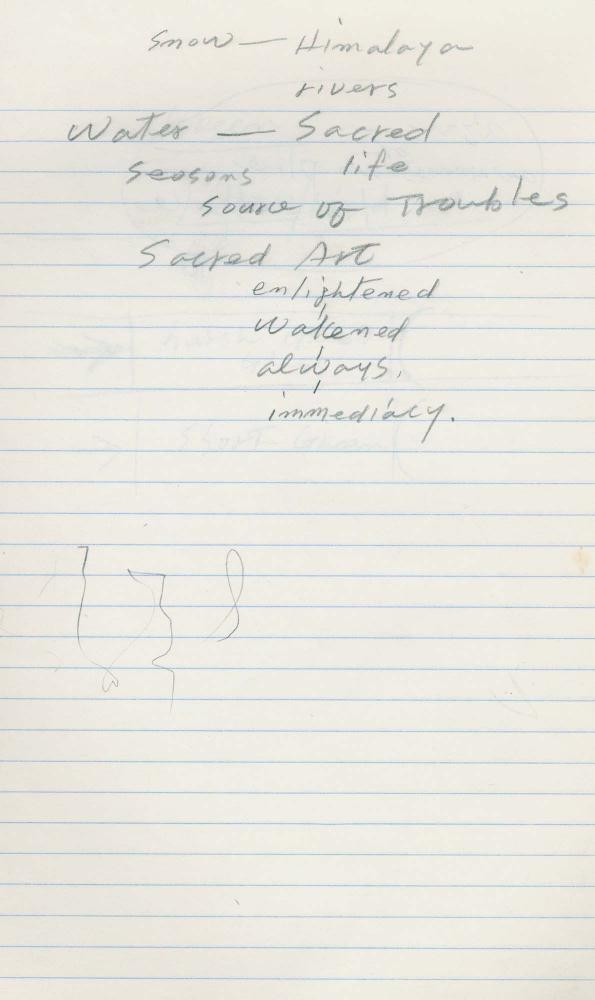 Snow — Himalaya
rivers
Water — Sacred
seasons life
source of Troubles
Sacred Art
enlightened
wakened
always,
immediacy.